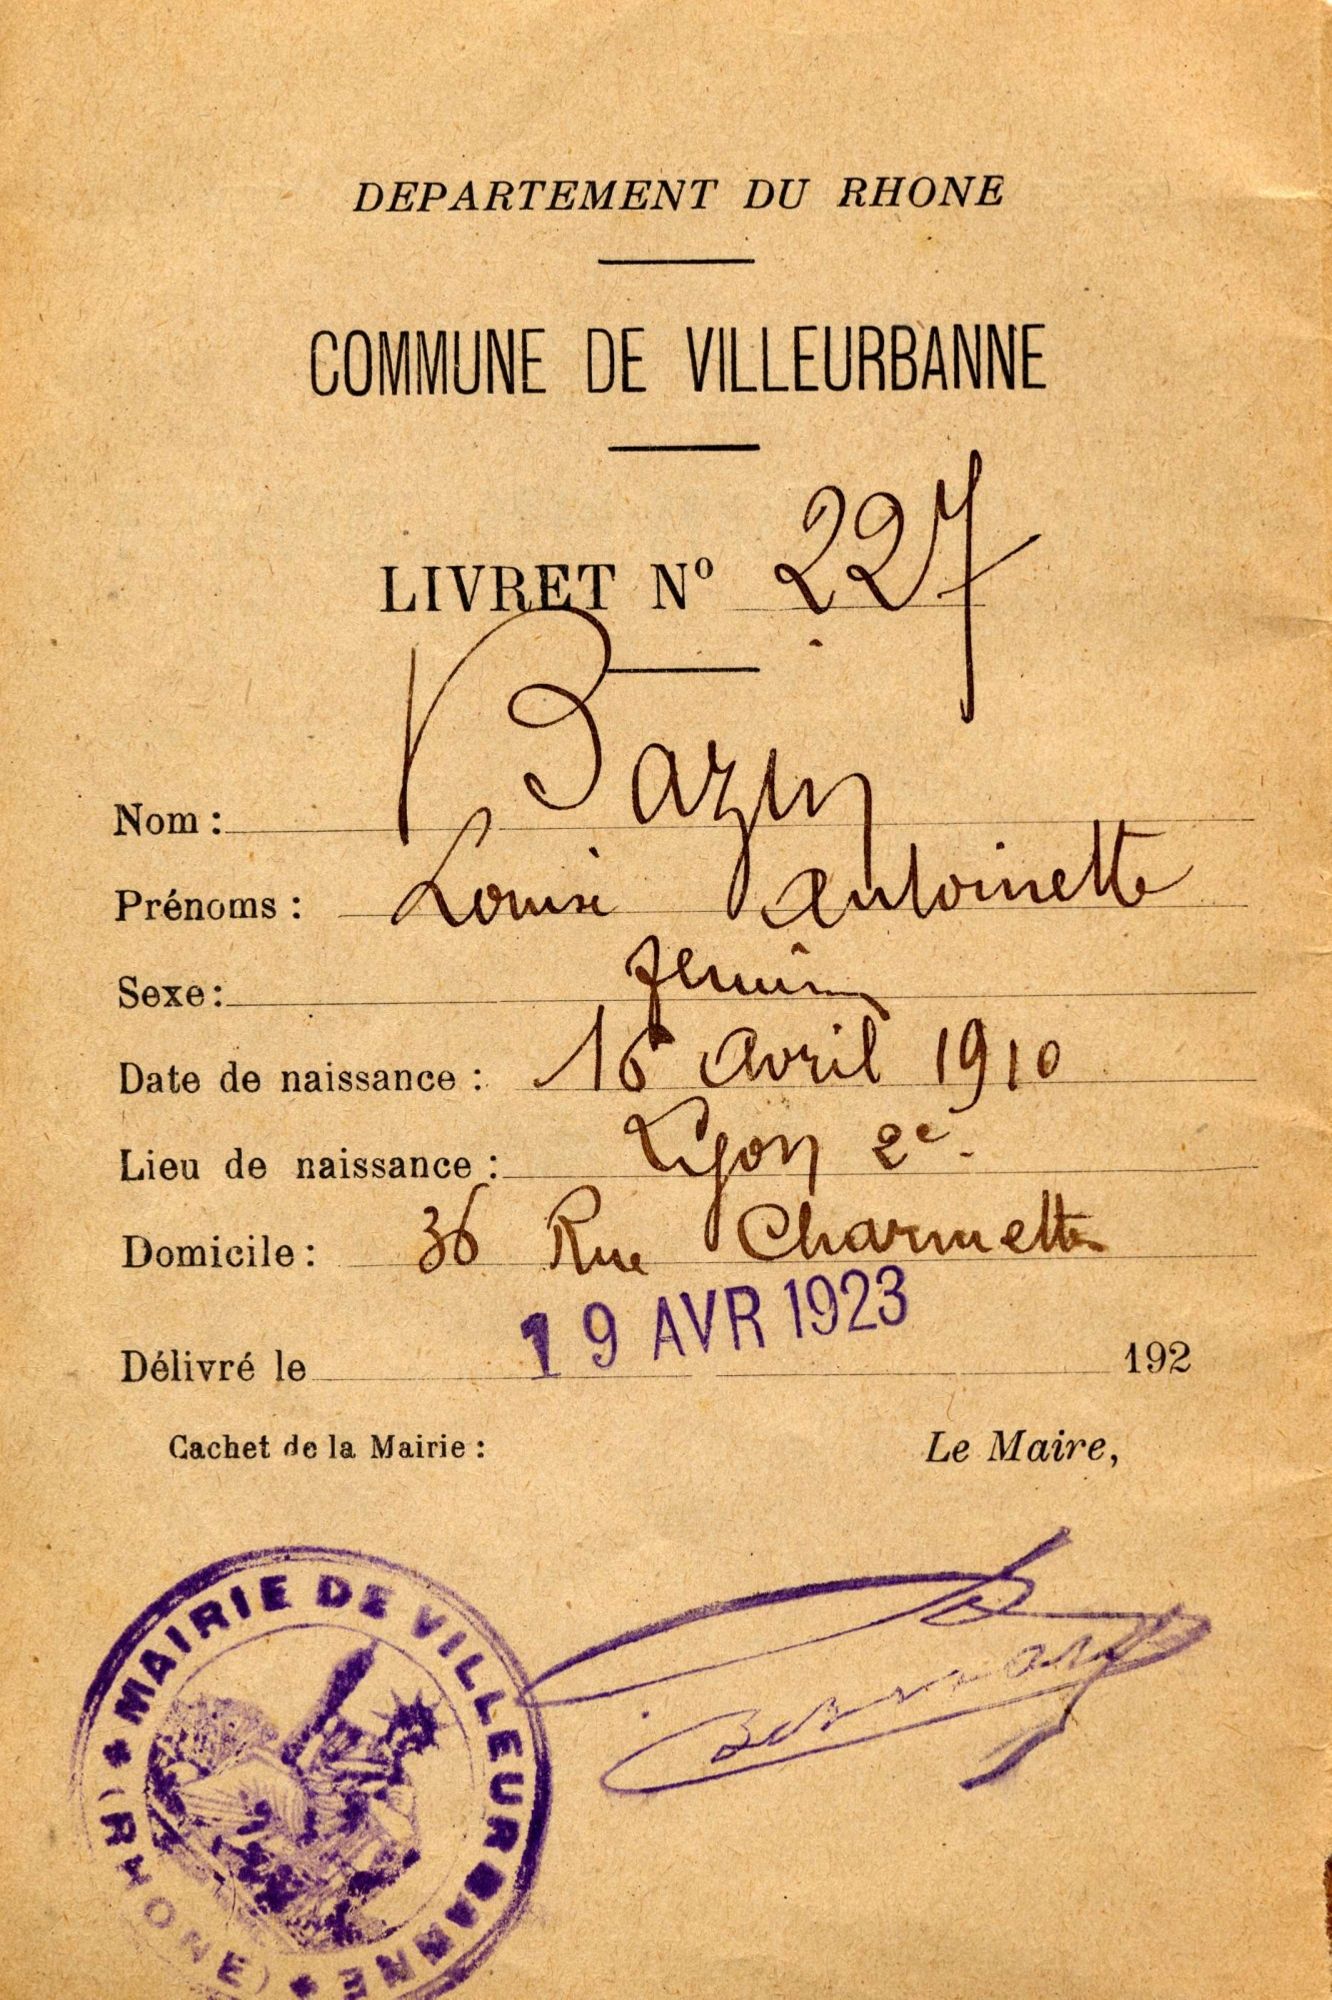 DEPARTEMENT DU RHONE
COMMUNE DE VILLEURBANNE
LIVRET Nº 227
Nom : Bazin
Prénoms : Louise Antoinette
Sexe : féminin
Date de naissance : 16 Avril 1910
Lieu de naissance : Lyon 2e.
Domicile : 36 Rue Charmettes
Délivré le 19 AVR 1923 192
Cachet de la Mairie :
Le Maire,
MAIRIE DE VILLEURBANNE
(RHONE)